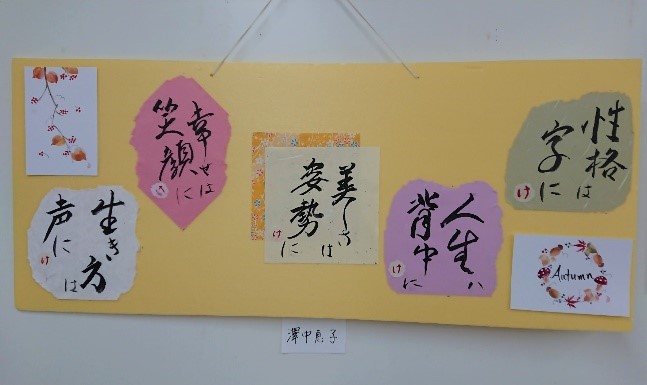 性格は
字に
け
人生ハ
背中に
け
美しさは
姿勢に
け
幸せは
笑顔に
生き方は
声に
け
Autumn
澤中恵子